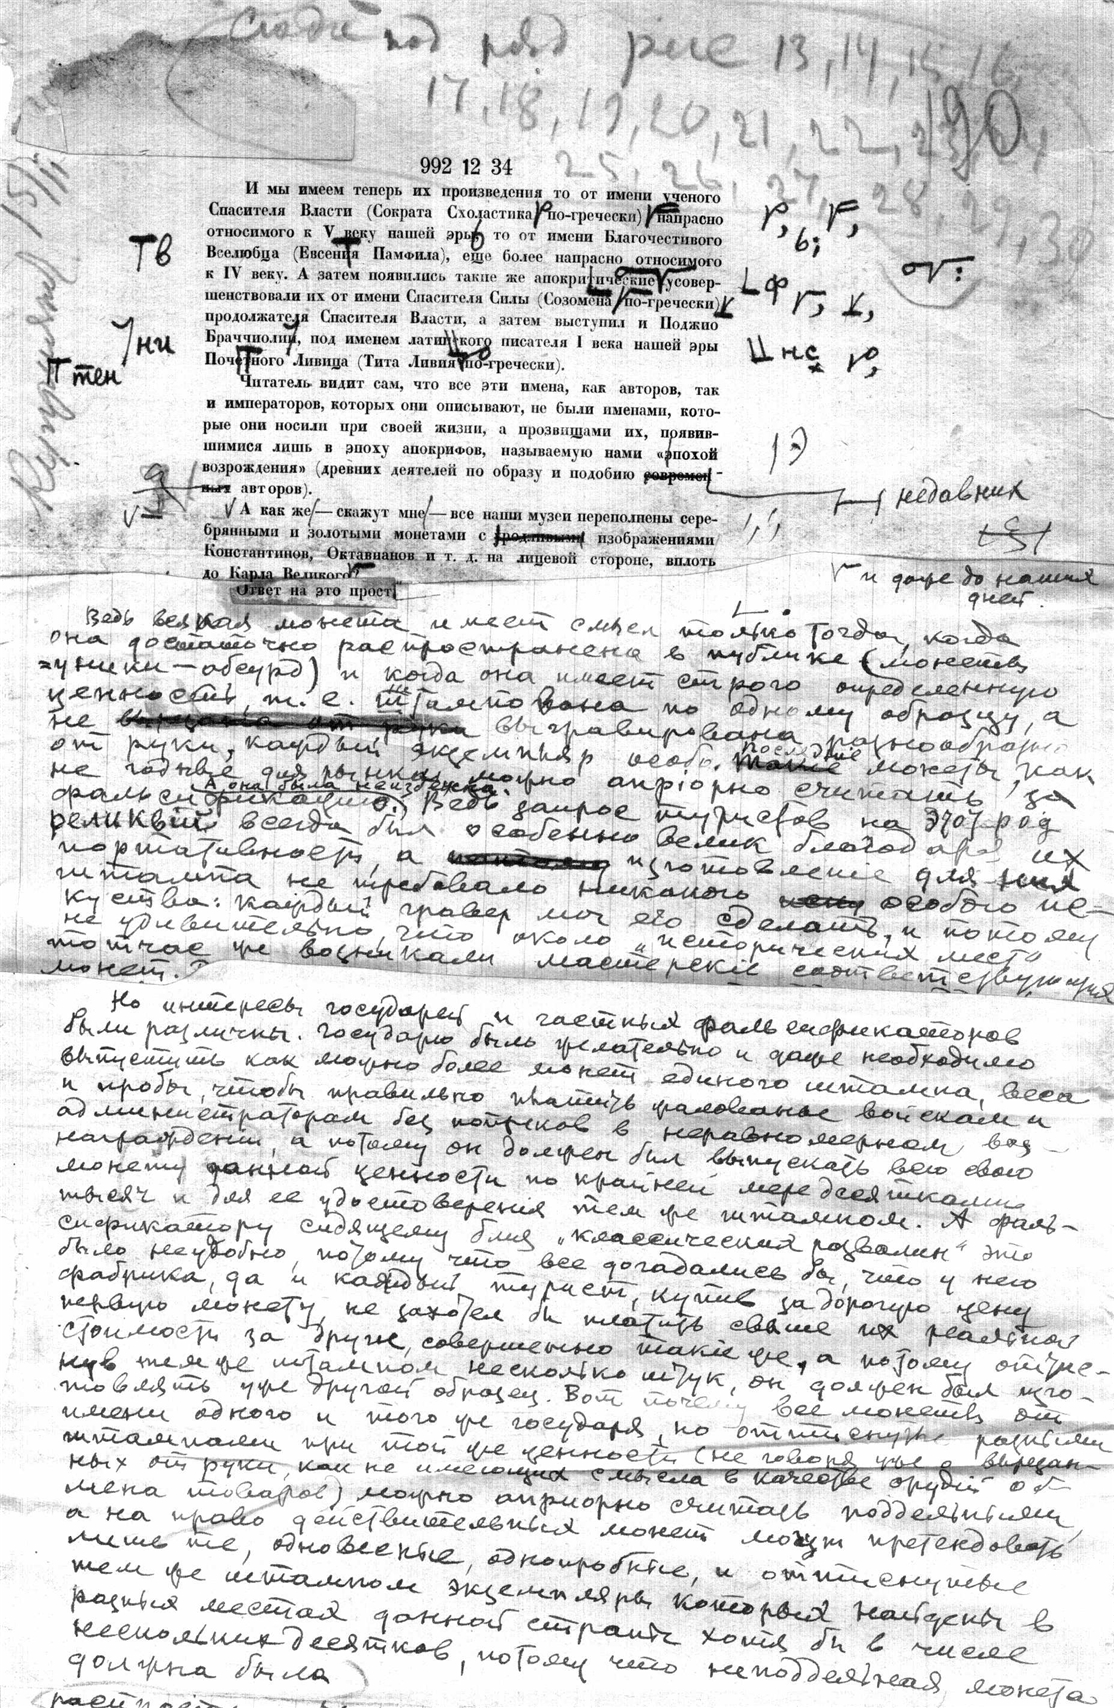 Сюда под ряд рис 13, 14, 15, 16,
17, 18, 19, 20, 21, 22,
190
25, 26, 27, 28, 29, 30
992 12 34
И мы имеем теперь их произведения то от имени ученого
Спасителя Власти (Сократа Схоластика по-гречески) напрасно
относимого к V веку нашей эры то от имени Благочестивого
Вселюбца (Евсения Памфила), еще более напрасно относимого
к IV веку. А затем появились такие же апокритические усовер-
шенствовали их от имени Спасителя Силы (Созомена по-гречески)
продолжателя Спасителя Власти, а затем выступил и Поджио
Браччиолин, под именем латинского писателя I века нашей эры
Почетного Ливица (Тита Ливия по-гречески).
Читатель видит сам, что все эти имена, как авторов, так
и императоров, которых они описывают, не были именами, кото-
рые они носили при своей жизни, а прозвищами их, появив-
шимися лишь в эпоху апокрифов, называемую нами «эпохой
возрождения» (древних деятелей по образу и подобию современ-
ных авторов).
недавних
А как же — скажут мне — все наши музеи переполнены сере-
брянными и золотыми монетами с изображениями
Константинов, Октавианов и т. д. на лицевой стороне, вплоть
до Карла Великого?
и даже до наших
дней.
Ответ на это прост.
Ведь всякая монета имеет смысл только тогда, когда
она достаточно распространена в публике (монеты
=уники — абсурд) и когда она имеет строго определенную
ценность, т. е. штампована по одному образцу, а
не вырезана от руки выгравирована разнообразно
от руки, каждый экземпляр особо. Последние монеты, как
не годные для рынка, можно априорно считать за
фальсификацию. А она была неизбежна. Ведь запрос туристов на этот род
реликвий всегда был особенно велик благодаря их
портативности, а изготовление для них
штампа не требовало никакого особого ис-
куства: каждый гравер мог его сделать, и потому
не удивительно, что около „исторических мест“
тотчас же возникали мастерские соответствующих
монет.
Но интересы государей и частных фальсификаторов
были различны. Государю было желательно и даже необходимо
выпустить как можно более монет единого штампа, веса
и пробы, чтобы правильно платить жалованье войскам и
администраторам без попреков в неравномерном воз-
награждении, а потому он должен был выпускать всю свою
монету данной ценности по крайней мере десятками
тысяч и для ее удостоверения тем же штампом. А фаль-
сификатору сидящему близ „классических развалин“ это
было неудобно, потому что все догадались бы, что у него
фабрика, да и каждый турист, купив за дорогую цену
первую монету, не захотел бы платить свыше их реальной
стоимости за другие, совершенно такие же, а потому оттис-
нув тем же штампом несколько штук, он должен был изго-
товлять уже другой образец. Вот почему все монеты от
имени одного и того же государя, но оттиснутые разными
штампами при той же ценности (не говоря уже о вырезан-
ных от руки, как не имеющих смысла в качестве орудий об-
мена товаров) можно априорно считать поддельными,
а на право действительных монет могут претендовать
лишь те, одновесные, однопробные, и оттиснутые
тем же штампом экземпляры которых найдены в
разных местах данной страны хотя бы в числе
нескольких десятков, потому что неподдельная монета
должна была